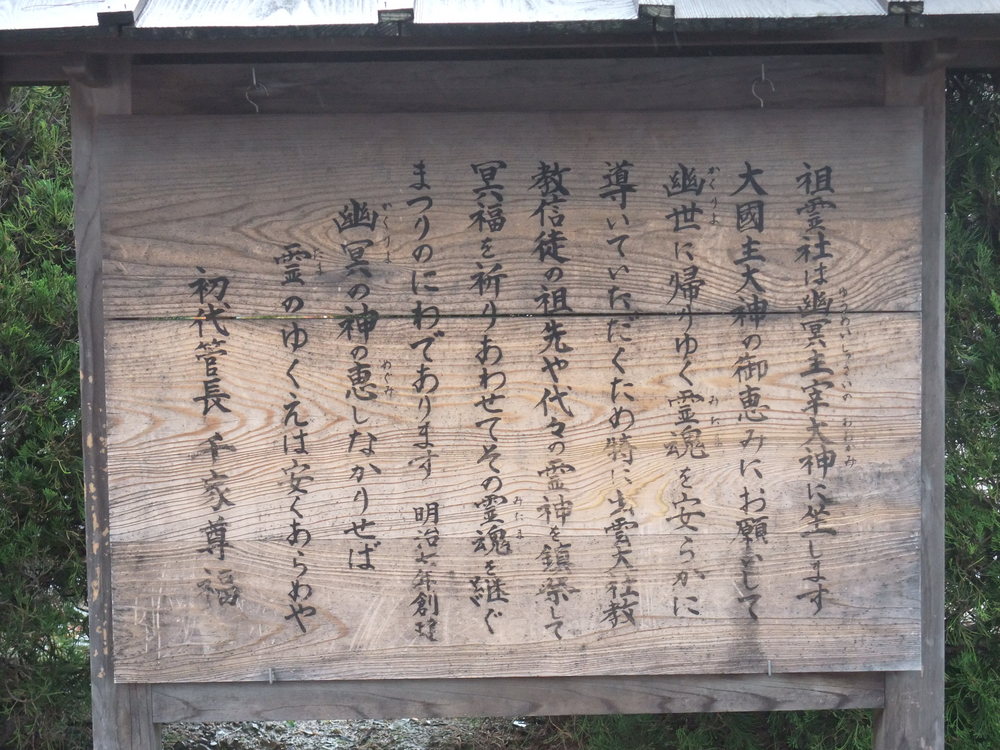 祖霊社は幽冥主宰大神に坐します
大國主大神の御恵みにお願をして
幽世に帰りゆく霊魂を安らかに
導いていただくため特に出雲大社教
教信徒の祖先や代々の霊神を鎮祭して
冥福を祈りあわせてその霊魂を継ぐ
まつりのにわであります 明治七年創建
幽冥の神の恵しなかりせば
霊のゆくえは安くあらめや
初代管長 千家尊福